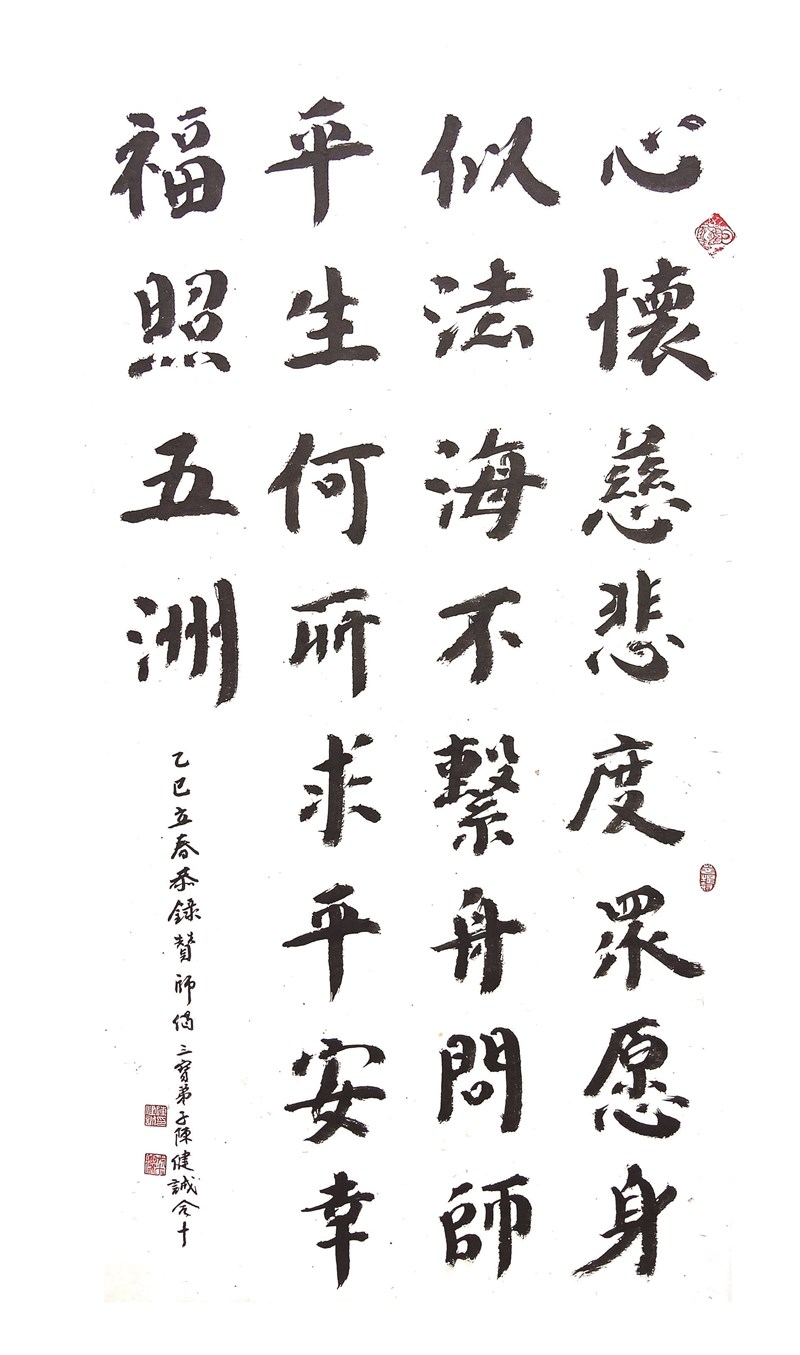 心懷慈悲度眾愿身
似法海不繫舟問師
平生何所求平安幸
福照五洲
乙巳立春恭錄贊師偈三寶弟子陳健誠合十